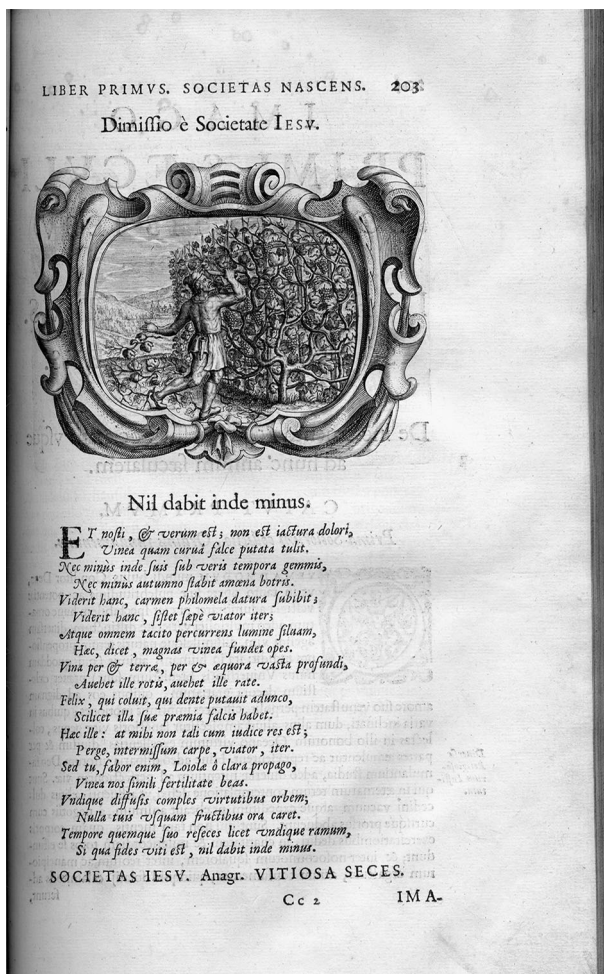 LIBER PRIMVS. SOCIETAS NASCENS. 203
Dimiſſio è Societate IESV.
Nil dabit inde minus.
ET noſti, & verum eſt; non eſt iactura dolori,
Vinea quam curuâ falce putata tulit.
Nec minùs inde ſuis ſub veris tempora gemmis,
Nec minùs autumno ſtabit amœna botris.
Viderit hanc, carmen philomela datura ſubibit;
Viderit hanc, ſiſtet ſæpè viator iter;
Atque omnem tacito percurrens lumine ſiluam,
Hæc, dicet, magnas vinea fundet opes.
Vina per & terræ, per & æquora vaſta profundi,
Auehet ille rotis, auehet ille rate.
Felix, qui coluit, qui dente putauit adunco,
Scilicet illa ſuæ præmia falcis habet.
Hæc ille: at mihi non tali cum iudice res eſt;
Perge, intermiſſum carpe, viator, iter.
Sed tu, fabor enim, Loiolæ ô clara propago,
Vinea nos ſimili fertilitate beas.
Vndique diffuſis comples virtutibus orbem;
Nulla tuis vſquam fructibus ora caret.
Tempore quemque ſuo reſeces licet vndique ramum,
Si qua fides viti eſt, nil dabit inde minus.
SOCIETAS IESV. Anagr. VITIOSA SECES.
Cc 2 IMA-